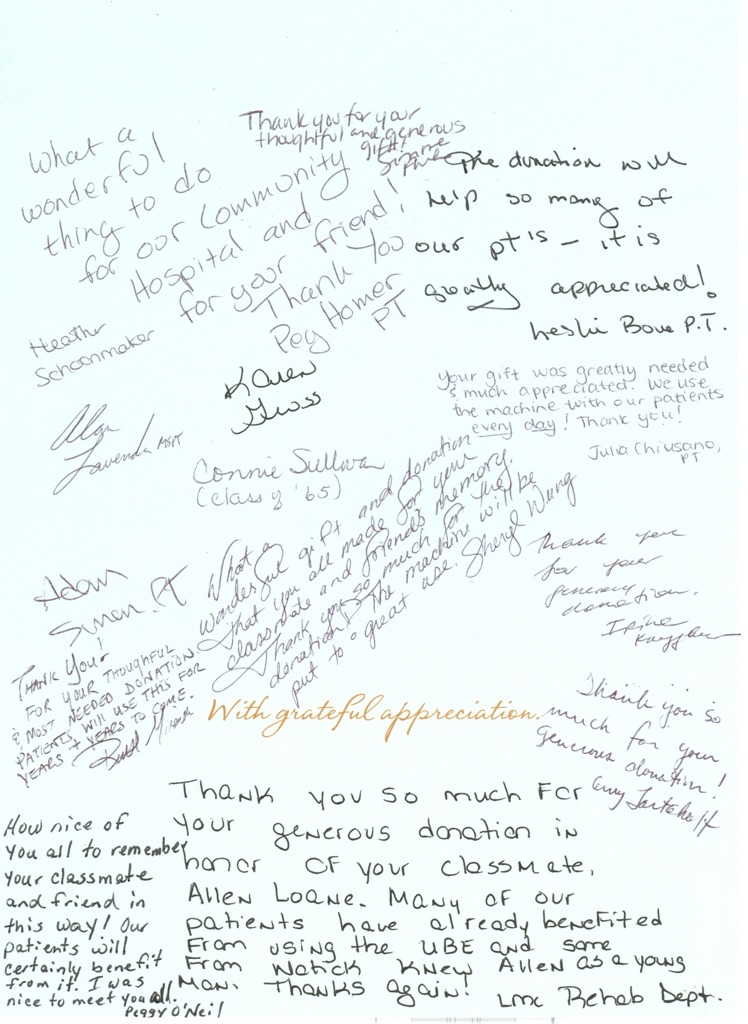 Thank you for your
thoughtful and generous
gift!
What a
wonderful
thing to do
for our Community
Hospital and
for your friend!
Thank You
Peg Homer
PT
The donation will
help so many of
our pt's – it is
greatly appreciated!
Leslie Bove P.T.
Heather
Schoonmaker
Karen
Gross
Your gift was greatly needed
& much appreciated. We use
the machine with our patients
every day! Thank you!
Julia Chiusano,
PT
MSPT
Connie Sullivan
(Class of '65)
What a
wonderful gift and donation
that you all made for your
classmate and friend's memory.
Thank you so much for the
donation! The machine will be
put to great use. Sheryl
Adam
PT
Thank you
for your
generous
donation.
Thank You!
For your thoughtful
& most needed donation.
Patients will use this for
years + years to come.
With grateful appreciation.
Thank you so
much for your
generous donation!
Amy
Thank you so much for
your generous donation in
honor of your classmate,
Allen Loane. Many of our
patients have already benefited
from using the UBE and some
from Natick knew Allen as a young
man. Thanks again! LMC Rehab Dept.
How nice of
you all to remember
your classmate
and friend in
this way! Our
patients will
certainly benefit
from it. I was
nice to meet you all.
Peggy O'Neil